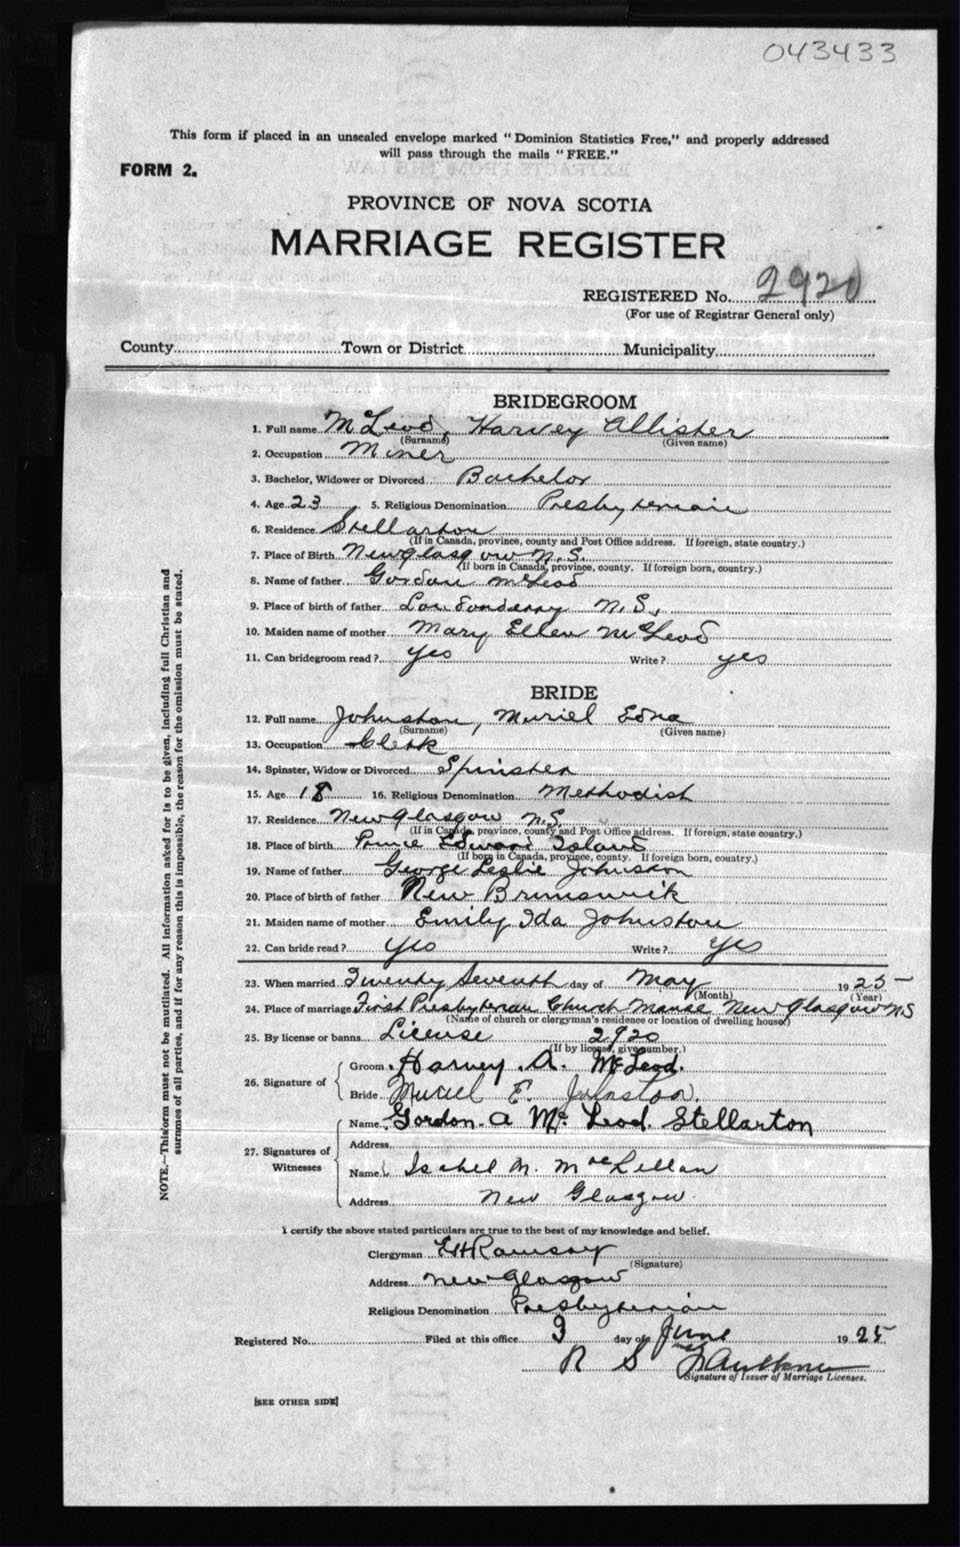 043433
This form if placed in an unsealed envelope marked "Dominion Statistics Free," and properly addressed
will pass through the mails "FREE."
FORM 2.
PROVINCE OF NOVA SCOTIA
MARRIAGE REGISTER
REGISTERED No. 2920
(For use of Registrar General only)
County Town or District Municipality
BRIDEGROOM
1. Full name McLeod, Harvey Allister
(Surname) (Given name)
2. Occupation Miner
3. Bachelor, Widower or Divorced Bachelor
4. Age 23 5. Religious Denomination Presbyterian
6. Residence Stellarton
(If in Canada, province, county and Post Office address. If foreign, state country.)
7. Place of Birth New Glasgow N.S.
(If born in Canada, province, county. If foreign born, country.)
8. Name of father Gordon McLeod
9. Place of birth of father Londonderry N.S.
10. Maiden name of mother Mary Ellen McLeod
11. Can bridegroom read? yes Write? yes
BRIDE
12. Full name Johnston, Muriel Edna
(Surname) (Given name)
13. Occupation Clerk
14. Spinster, Widow or Divorced Spinster
15. Age 18 16. Religious Denomination Methodist
17. Residence New Glasgow N.S.
(If in Canada, province, county and Post Office address. If foreign, state country.)
18. Place of birth Prince Edward Island
(If born in Canada, province, county. If foreign born, country.)
19. Name of father George Leslie Johnston
20. Place of birth of father New Brunswick
21. Maiden name of mother Emily Ida Johnston
22. Can bride read? yes Write? yes
23. When married Twenty Seventh day of May 1925
(Month) (Year)
24. Place of marriage First Presbyterian Church Manse New Glasgow NS
(Name of church or clergyman's residence or location of dwelling house)
25. By license or banns License 2920
(If by license, give number.)
26. Signature of Groom Harvey. A. McLeod.
Bride Muriel E. Johnston.
27. Signatures of Witnesses Name Gordon. A McLeod. Stellarton
Address
Name Isabel M. MacLellan
Address New Glasgow.
I certify the above stated particulars are true to the best of my knowledge and belief.
Clergyman EH Ramsay
(Signature)
Address New Glasgow
Religious Denomination Presbyterian
Registered No. Filed at this office 3 day of June 1925
R S
Signature of Issuer of Marriage Licenses.
[SEE OTHER SIDE]
NOTE.—This form must not be mutilated. All information asked for is to be given, including full Christian and
surnames of all parties, and if for any reason this is impossible, the reason for the omission must be stated.